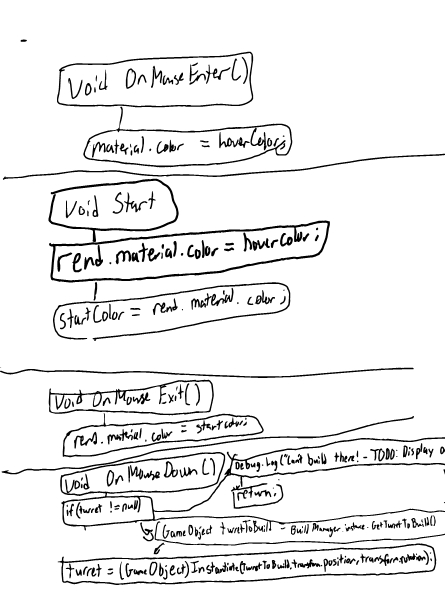 void OnMouseEnter()
material.color = hoverColor;
Void Start
rend.material.color = hoverColor;
StartColor = rend.material.color;
Void OnMouse Exit()
rend.material.color = startcolor;
Void OnMouseDown()
Debug.Log("Can't build there! - TODO: Display o
if (turret != null)
return;
GameObject turretToBuild = Build Manager.GetTurretToBuild()
turret = (GameObject)Instantiate(turretToBuild, transform.position, transform.rotation);